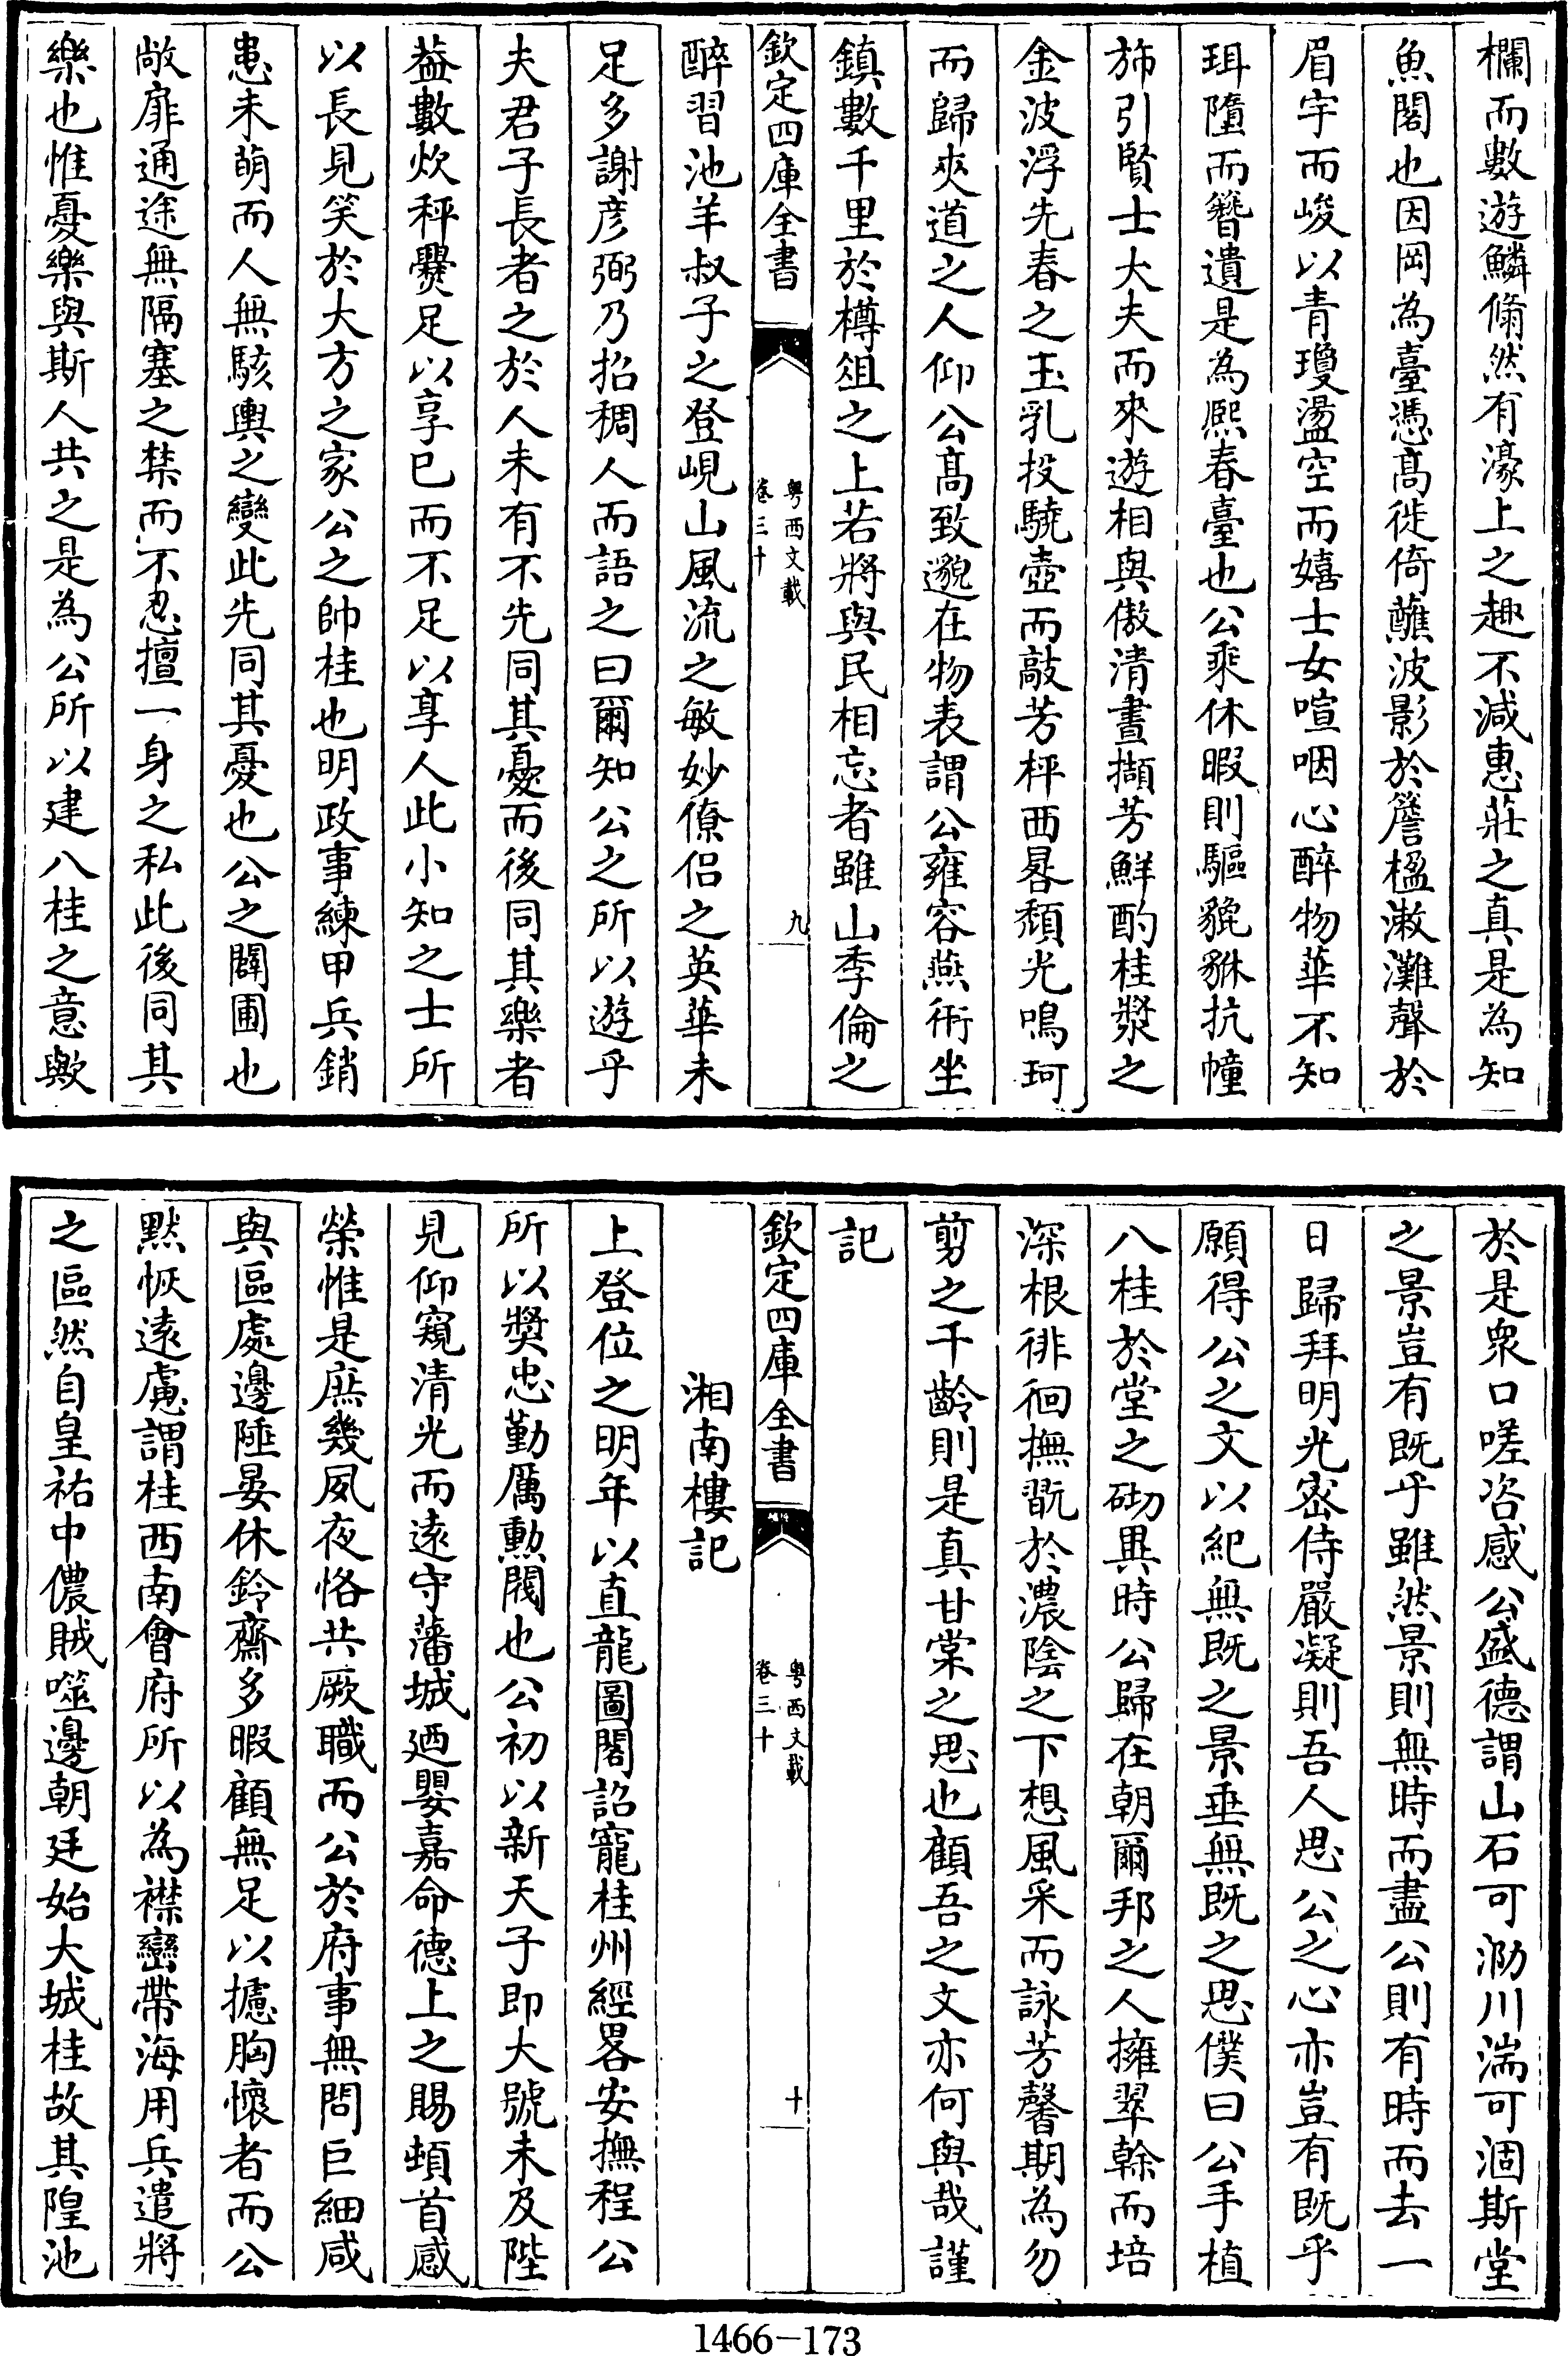 欄而數遊鱗翛然有濠上之趣不減惠莊之真是為知
魚閣也因岡為臺憑髙徙倚蘸波影於簷楹漱灘聲於
眉宇而峻以青瓊盪空而嬉士女喧咽心醉物華不知
珥墮而簪遺是為熈春臺也公乘休暇則驅貔貅抗幢
斾引賢士大夫而來遊相與傲清晝擷芳鮮酌桂漿之
金波浮先春之玉乳投驍壺而敲芳枰西晷頽光鳴珂
而歸夾道之人仰公髙致邈在物表謂公雍容燕衎坐
鎮數千里於樽俎之上若將與民相忘者雖山季倫之
欽定四庫全書
粤西文載
卷三十
九
醉習池羊叔子之登峴山風流之敏妙僚侣之英華未
足多謝彦弼乃招稠人而語之曰爾知公之所以遊乎
夫君子長者之於人未有不先同其憂而後同其樂者
葢數炊秤爨足以享已而不足以享人此小知之士所
以長見笑於大方之家公之帥桂也明政事練甲兵銷
患未萌而人無駭輿之變此先同其憂也公之闢圃也
敞扉通途無隔塞之禁而不忍擅一身之私此後同其
樂也惟憂樂與斯人共之是為公所以建八桂之意歟
於是衆口嗟咨感公盛德謂山石可泐川湍可涸斯堂
之景豈有既乎雖然景則無時而盡公則有時而去一
日歸拜明光宻侍嚴凝則吾人思公之心亦豈有既乎
願得公之文以紀無既之景垂無既之思僕曰公手植
八桂於堂之砌異時公歸在朝爾邦之人擁翠幹而培
深根徘徊撫翫於濃陰之下想風采而詠芳馨期為勿
剪之千齡則是真甘棠之思也顧吾之文亦何與哉謹
記
欽定四庫全書
粤西文載
卷三十
十
湘南樓記
上登位之明年以直龍圖閣詔寵桂州經畧安撫程公
所以奬忠勤厲勲閥也公初以新天子即大號未及陛
見仰窺清光而逺守藩城廼嬰嘉命德上之賜頓首感
榮惟是庶幾夙夜恪共厥職而公於府事無問巨細咸
與區處邊陲晏休鈴齋多暇顧無足以攄胸懷者而公
黙恢逺慮謂桂西南㑹府所以為襟巒帶海用兵遣將
之區然自皇祐中儂賊噬邊朝廷始大城桂故其隍池
1466-173